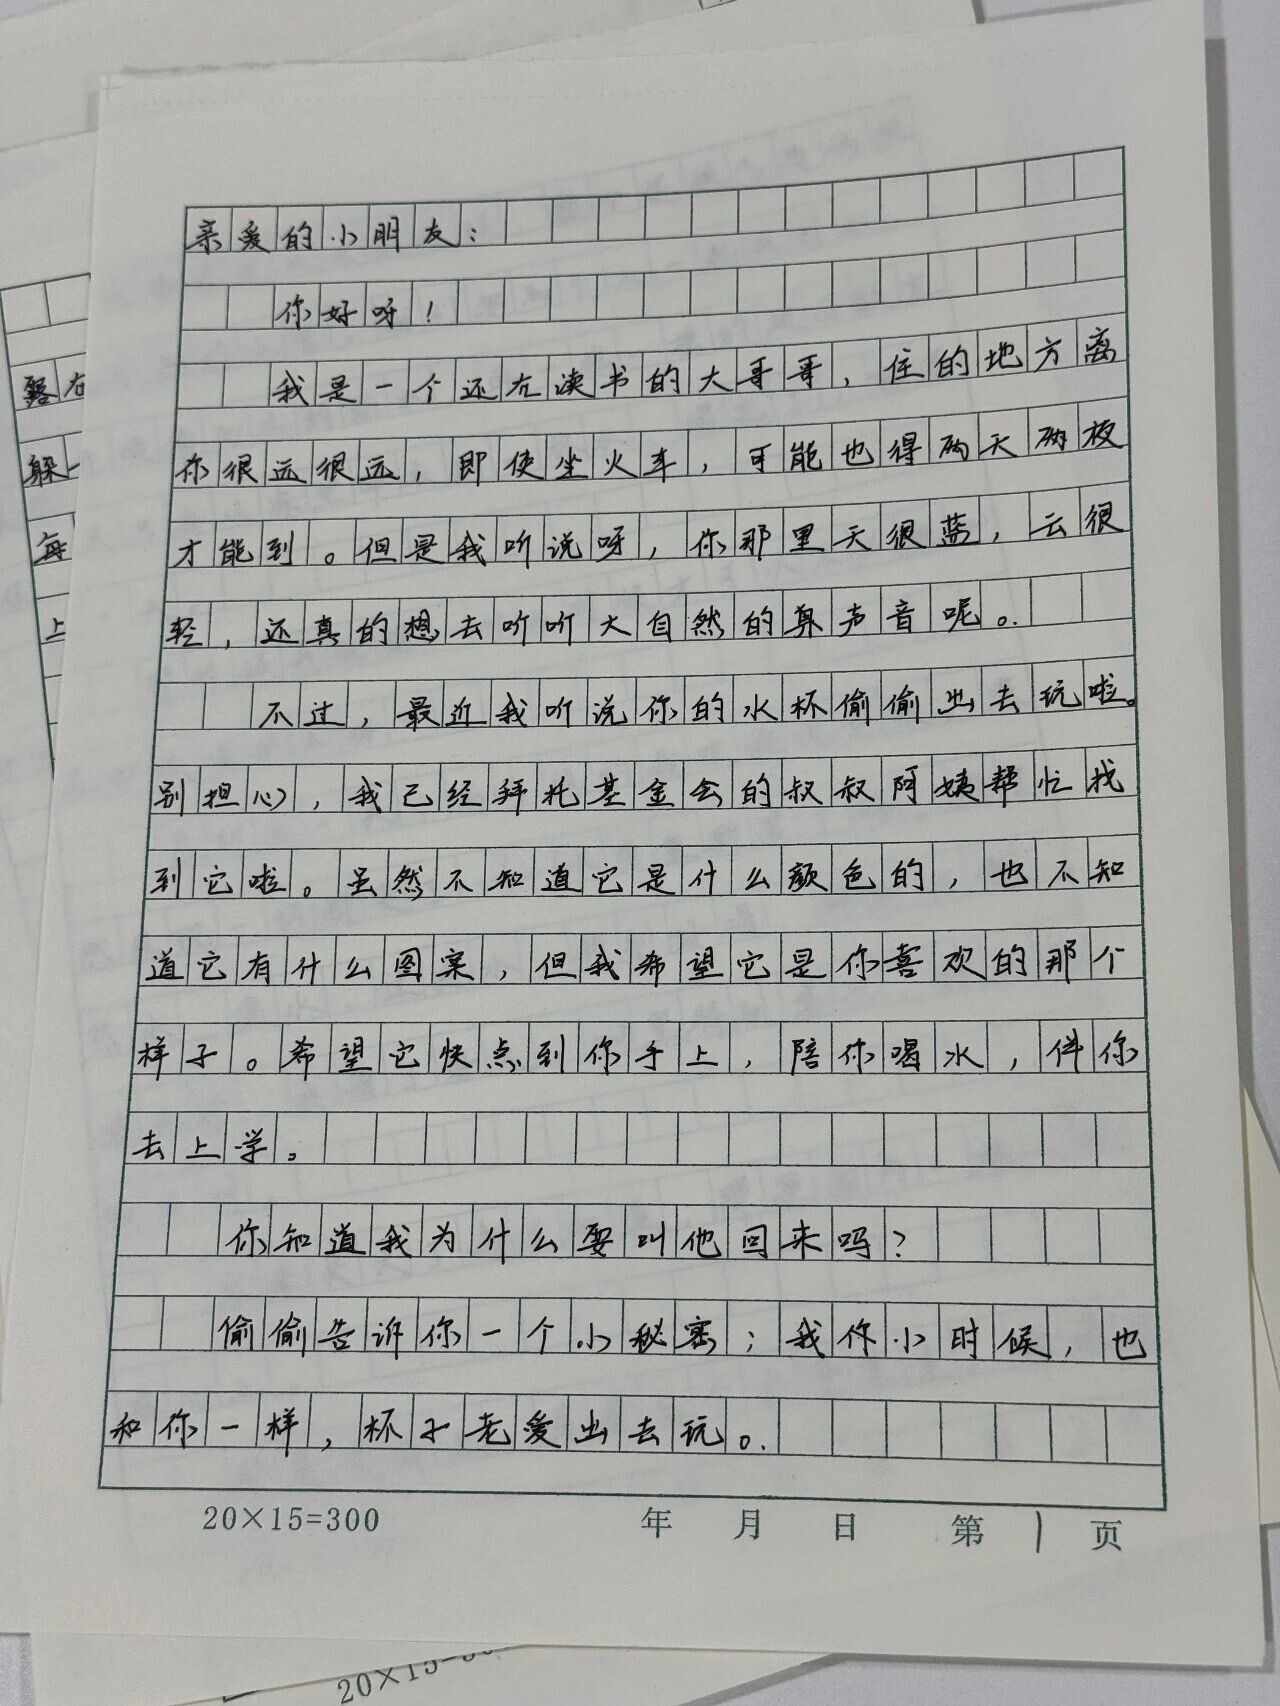 亲爱的小朋友：
你好呀！
我是一个还在读书的大哥哥，住的地方离
你很远很远，即使坐火车，可能也得两天两夜
才能到。但是我听说呀，你那里天很蓝，云很
轻，还真的想去听听大自然的真声音呢。
不过，最近我听说你的水杯偷偷出去玩啦。
别担心，我已经拜托基金会的叔叔阿姨帮忙找
到它啦。虽然不知道它是什么颜色的，也不知
道它有什么图案，但我希望它是你喜欢的那个
样子。希望它快点到你手上，陪你喝水，伴你
去上学。
你知道我为什么要叫他回来吗？
偷偷告诉你一个小秘密；我像你小时候，也
和你一样，杯子老爱出去玩。
20×15=300 年 月 日 第 1 页
躲一
每
上
20×15=300